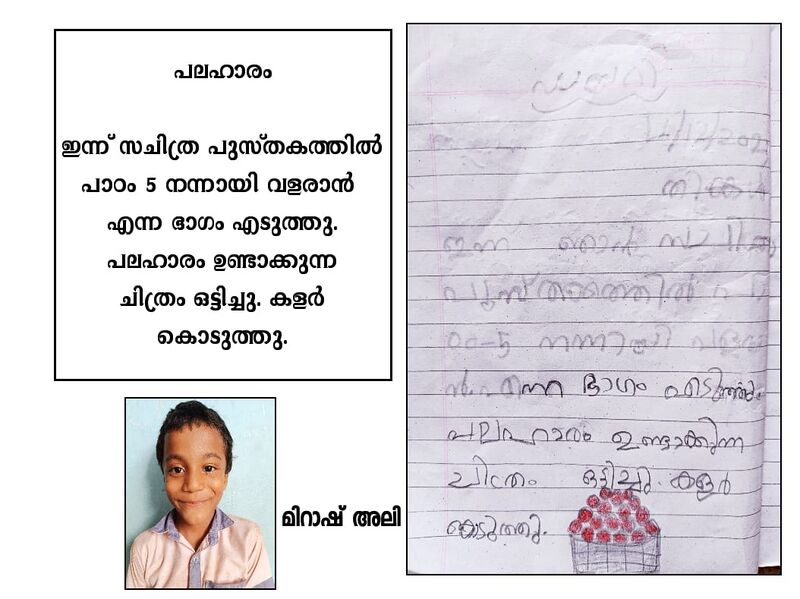 പലഹാരം
ഇന്ന് സചിത്ര പുസ്തകത്തിൽ
പാഠം 5 നന്നായി വളരാൻ
എന്ന ഭാഗം എടുത്തു.
പലഹാരം ഉണ്ടാക്കുന്ന
ചിത്രം ഒട്ടിച്ചു. കളർ
കൊടുത്തു.
മിറാഷ് അലി
ഡയറി
തിങ്കൾ
ഇന്ന ഞാൻ
പുസ്തകത്തിൽ
-5 നന്നായി
എന്ന ഭാഗം എടുത്തു.
പലഹാരം ഉണ്ടാക്കുന്ന
ചിത്രം ഒട്ടിച്ചു. കളർ
കെടുത്തു.